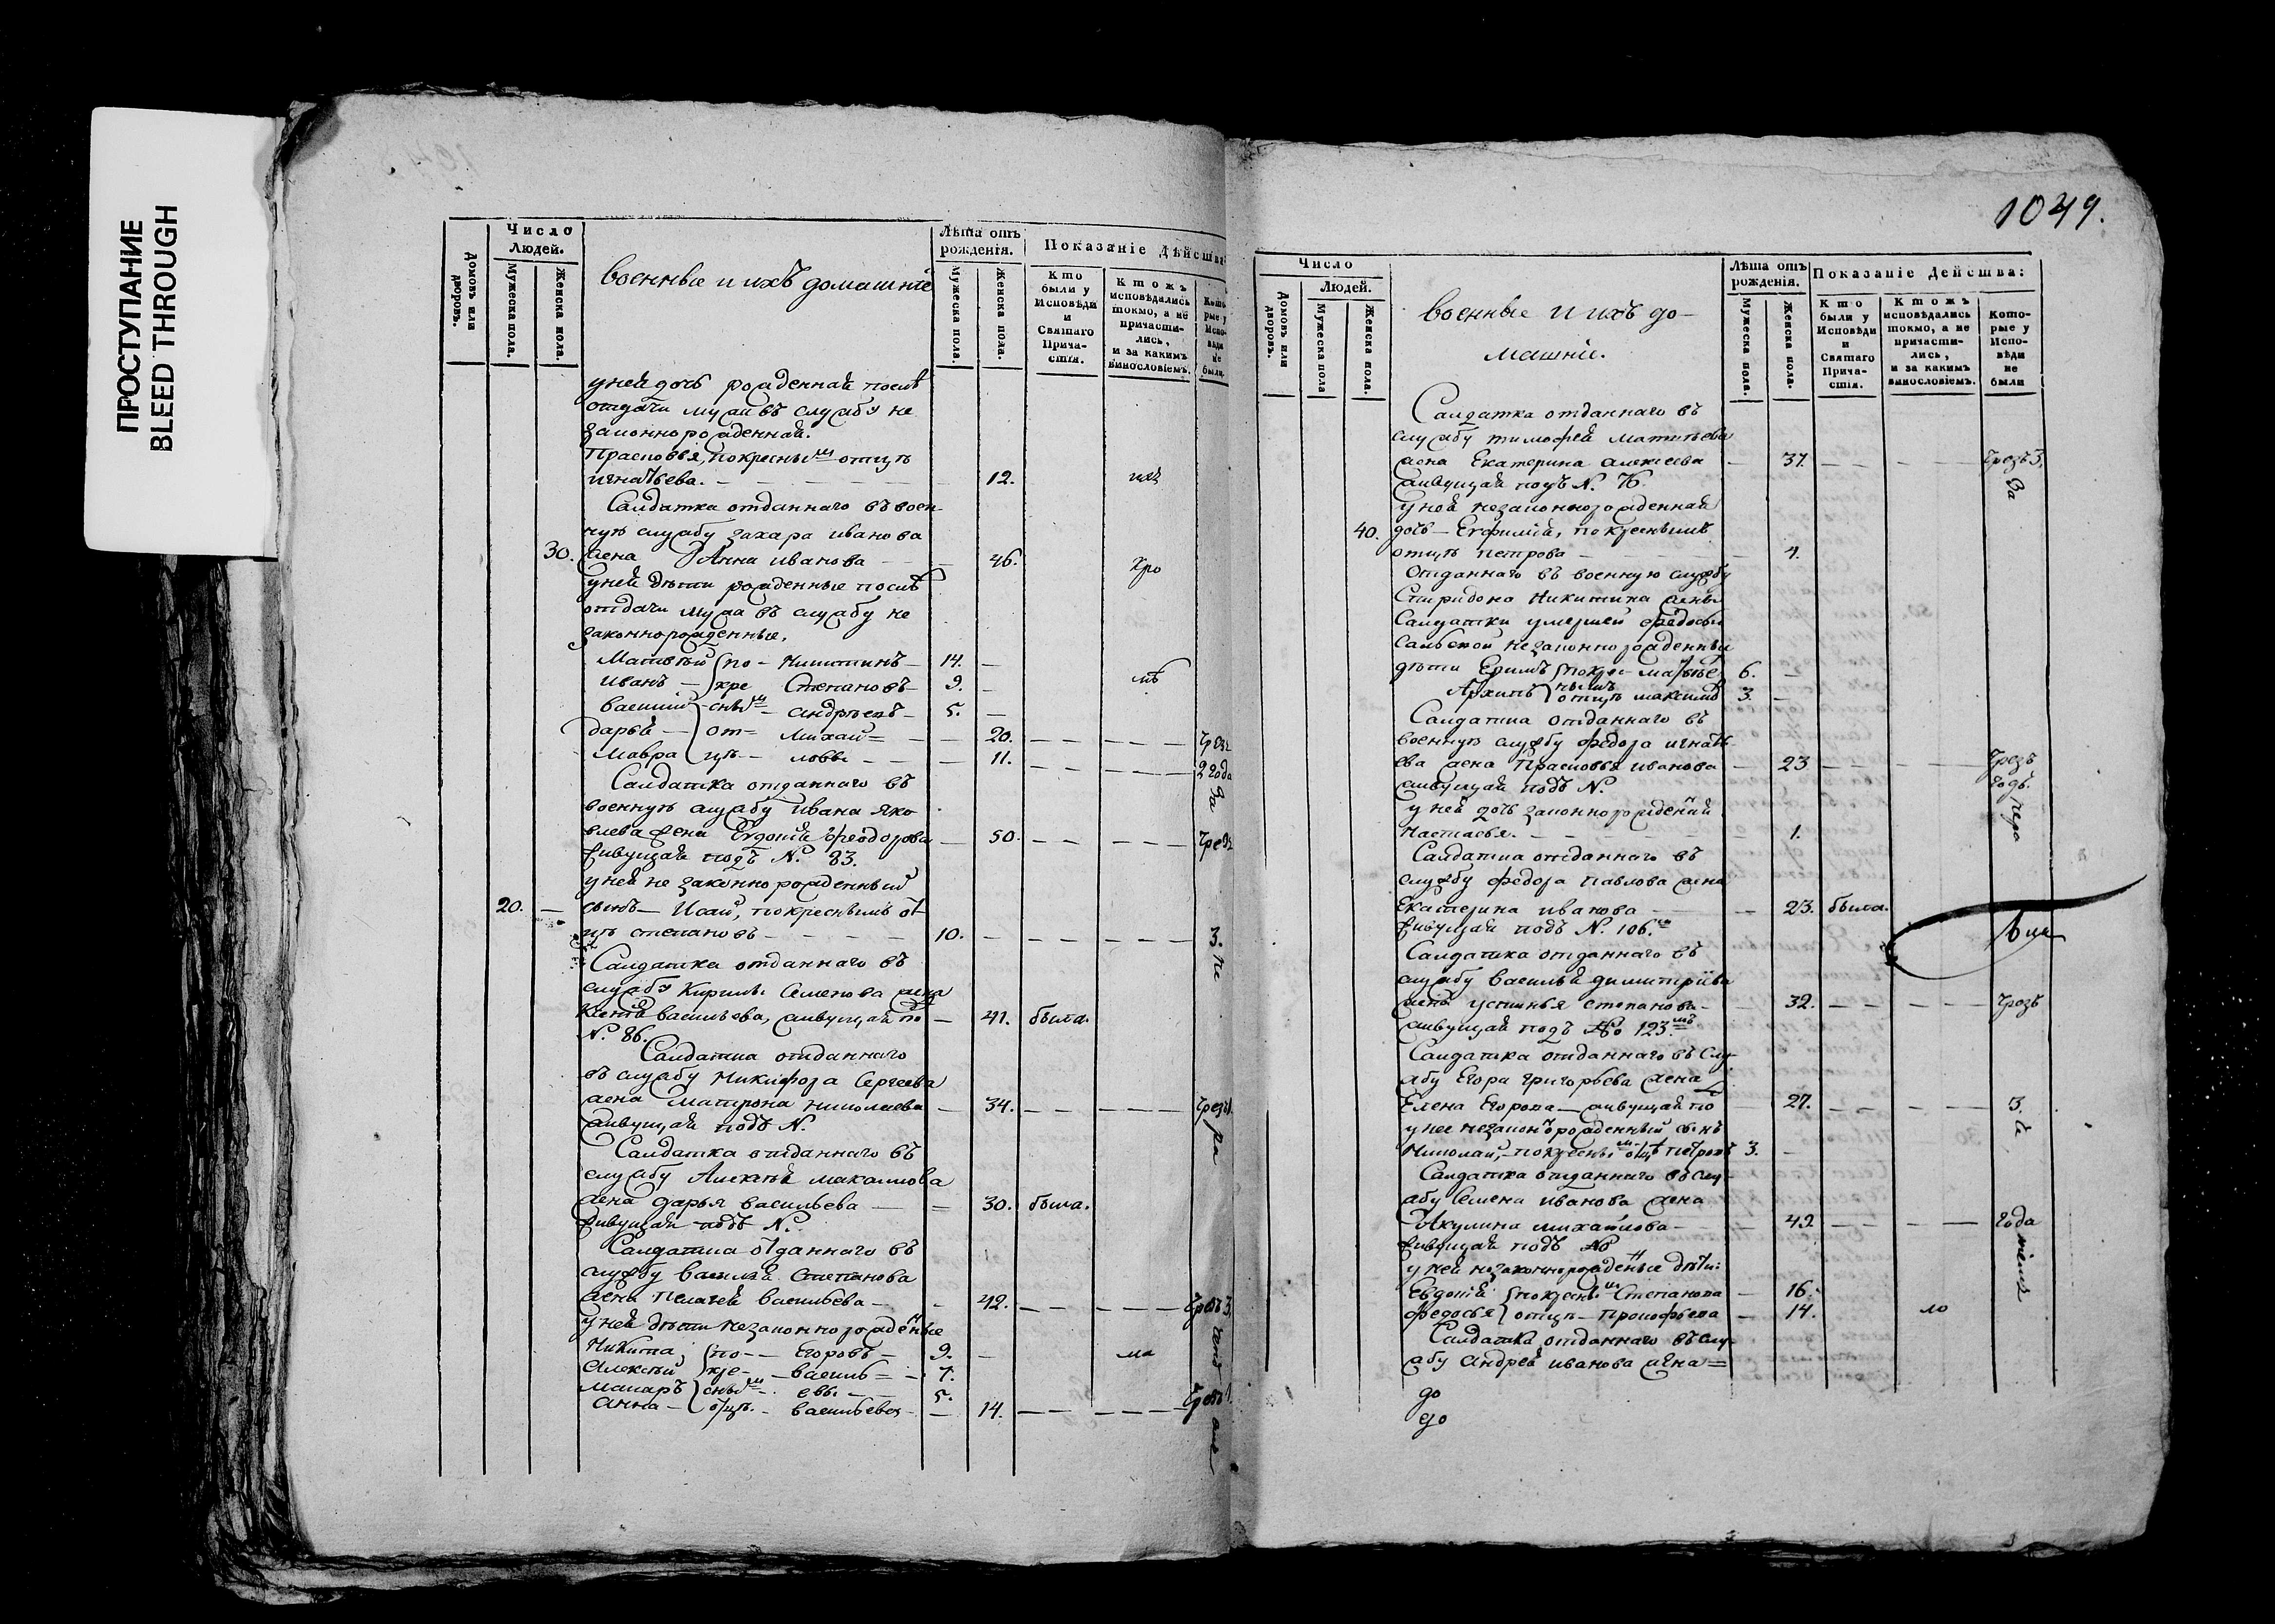 ПРОСТУПАНИЕ
BLEED THROUGH
Число
Людей.
Домовъ или дворовъ.
Мужеска пола.
Женска пола.
военные и ихъ домашніе
Лѣта отъ
рожденія.
Мужеска пола.
Женска пола.
Показаніе дѣйства
Кто были у Исповѣди и Святаго Причастія.
Ктожъ исповѣдались токмо, а не причастились, и за какимъ винословіемъ.
Которые у Исповѣди не были.
у ней дочь рожденная послѣ
отдачи мужа въ службу не
законнорожденная.
Прасковья, по крестнымъ отцѣ
игнатьева. 12.
Салдатка отданнаго въ воен-
ную службу захара иванова
30. жена Анна иванова 46.
у ней дѣти рожденные послѣ
отдачи мужа въ службу не
законнорожденные.
Матвѣй по - Никитинъ 14.
Иванъ кре Степановъ 9.
Василий снымъ андреевъ 5.
дарья от= михай= 20. чрезъ
Мавра цѣ ловы 11. 2 года
Салдатка отданнаго въ
военную службу ивана яко
влева жена Евдокия Феодорова 50. чрезъ
живущая подъ N. 83.
у ней не законнорожденный
20. сынъ Исай, по крестнымъ от
цѣ степановъ 10. 3.
Салдатка отданнаго въ
службу Кирилы Семенова жена
васильева, живущая по 41. была.
N. 86.
Салдатка отданнаго
въ службу Никифора Сергеева
жена Матрона николаева 34.
живущая подъ N.
Салдатка отданнаго въ
службу Алексѣя
жена дарья васильева 30. была.
живущая подъ N.
Салдатка отданнаго въ
службу василья Степанова
жена Пелагея васильева 42. чрезъ 3
у ней дѣти незаконнорожденные
Никита, по- Егоровъ 9.
Алексѣй кре- василь= 7.
Макаръ снымъ евы 5.
Анна отцѣ. васильева 14.
1049.
Число
Людей.
Домовъ или дворовъ.
Мужеска пола
Женска пола.
военные и ихъ до-
машніе.
Лѣта отъ
рожденія.
Мужеска пола.
Женска пола.
Показаніе дейсшва:
Кто были у Исповѣди и Святаго Причастія.
Ктожъ исповѣдались токмо, а не причастились, и за какимъ винословіемъ.
Которые у Исповѣди не были
Салдатка отданнаго въ
службу тимофея Матвѣева
жена Екатерина алексеева 37. чрезъ 3.
живущая подъ N. 76
у ней незаконнорожденная
40. дочь Евфимия, по крестнымъ
отцѣ петрова 4.
Отданнаго въ военную службу
Спиридона Никитина жены
Салдатки умершей федосьи
незаконнорожденныи
дѣти Ефимъ по крес- матвѣе 6.
Архипъ нымъ отцѣ максимъ 3.
Салдатка отданнаго въ
военную службу федора игнать
ева жена Прасковья иванова 23 чрезъ
живущая подъ N. годъ.
у ней дочь законнорожденая
Настасья. 1.
Салдатка отданнаго въ
службу федора павлова жена
Екатерина иванова 23. была.
живущая подъ N. 106.
Салдатка отданнаго въ
службу василья димитриева
жена устинья степанова 32. чрезъ
живущая подъ No 123.
Салдатка отданнаго въ слу-
жбу Егора григорьева жена
Елена Егорова живущая по 27. 3.
у нее незаконнорожденный сынъ
Николай, по крестнымъ отцѣ петровъ 3.
Салдатка отданнаго въ слу-
жбу Семена иванова жена
Акулина михайлова 42 года
живущая подъ No
у ней незаконнорожденые дѣти:
Евдокия по крестнымъ Степанова 16.
федосья отцѣ Прокофьева 14.
Салдатка отданнаго въ слу-
жбу андрея иванова жена=
до
до